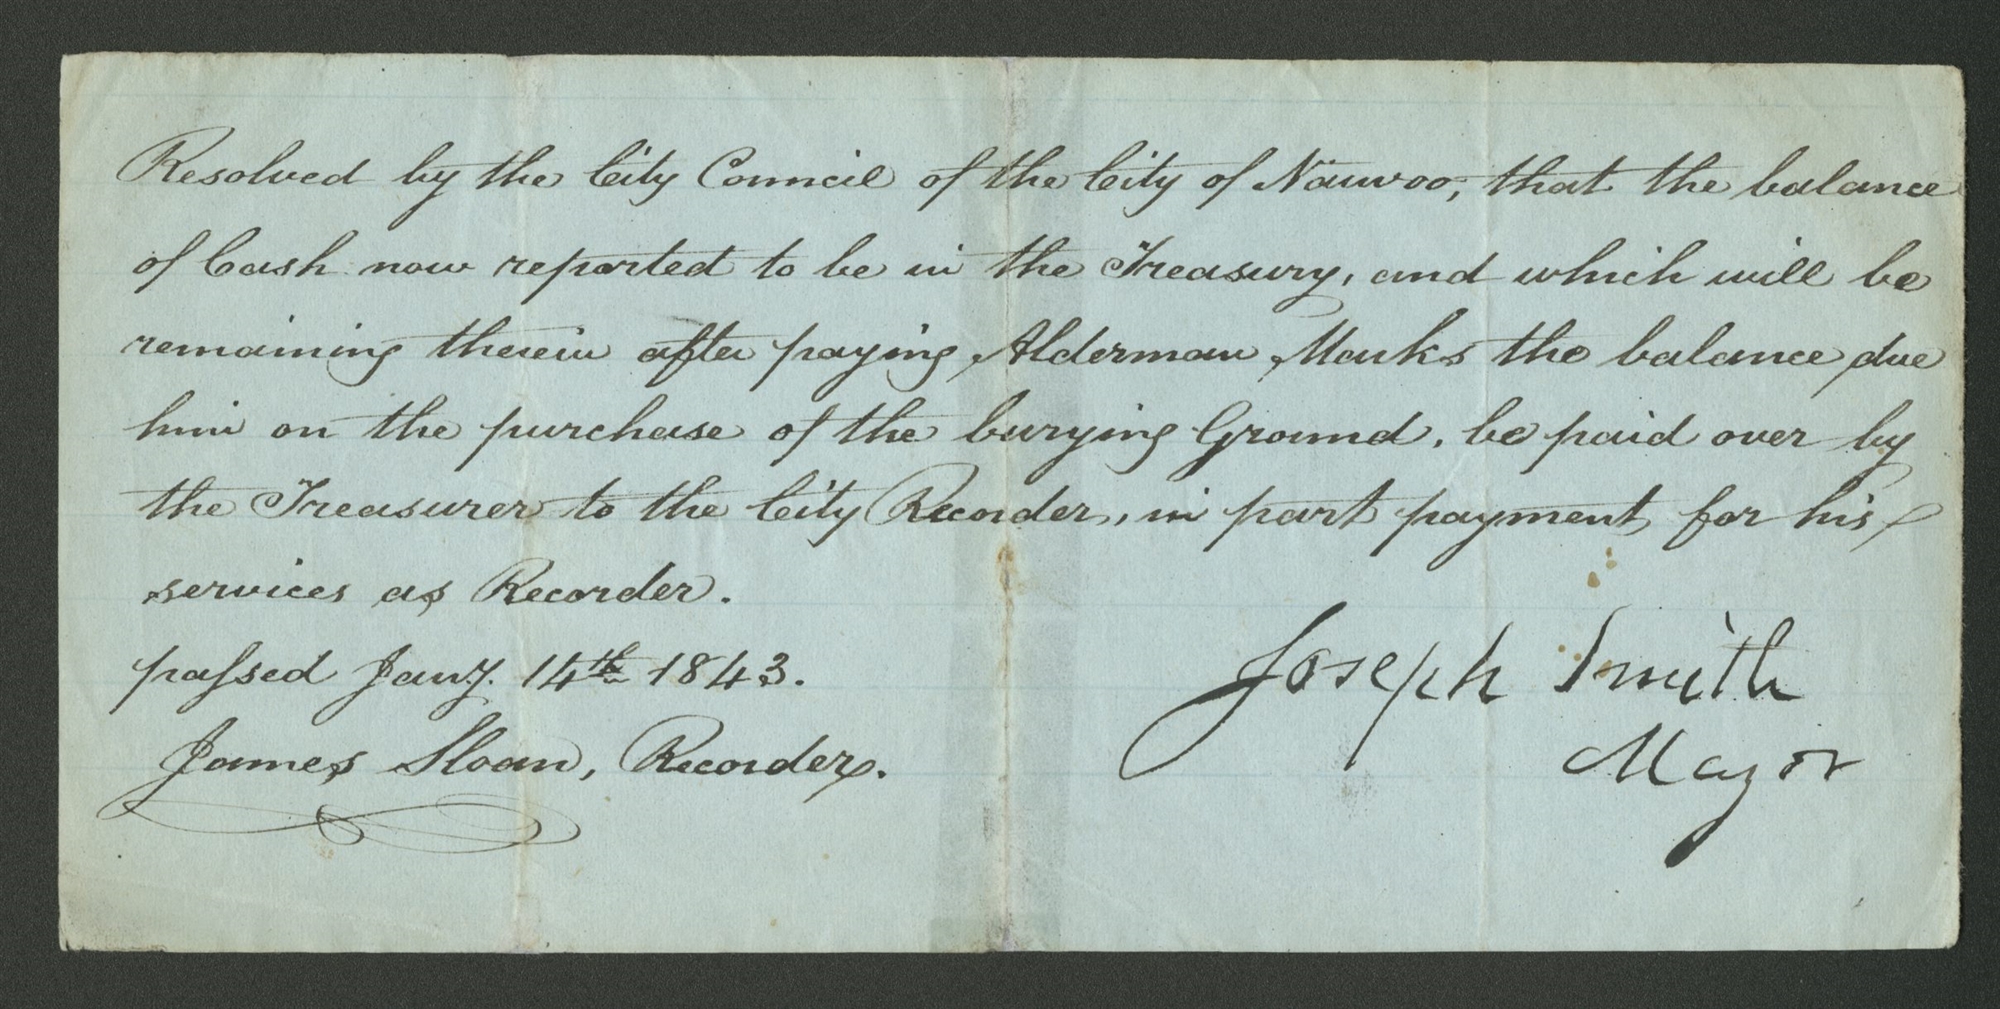 Resolved by the City Council of the City of Nauvoo, that the balance
of Cash now reported to be in the Treasury, and which will be
remaining therein after paying Alderman Marks the balance due
him on the purchase of the burying Ground, be paid over by
the Treasurer to the City Recorder, in part payment for his
services as Recorder.
passed Jany. 14th 1843.
Joseph Smith
Mayor
James Sloan, Recorder.